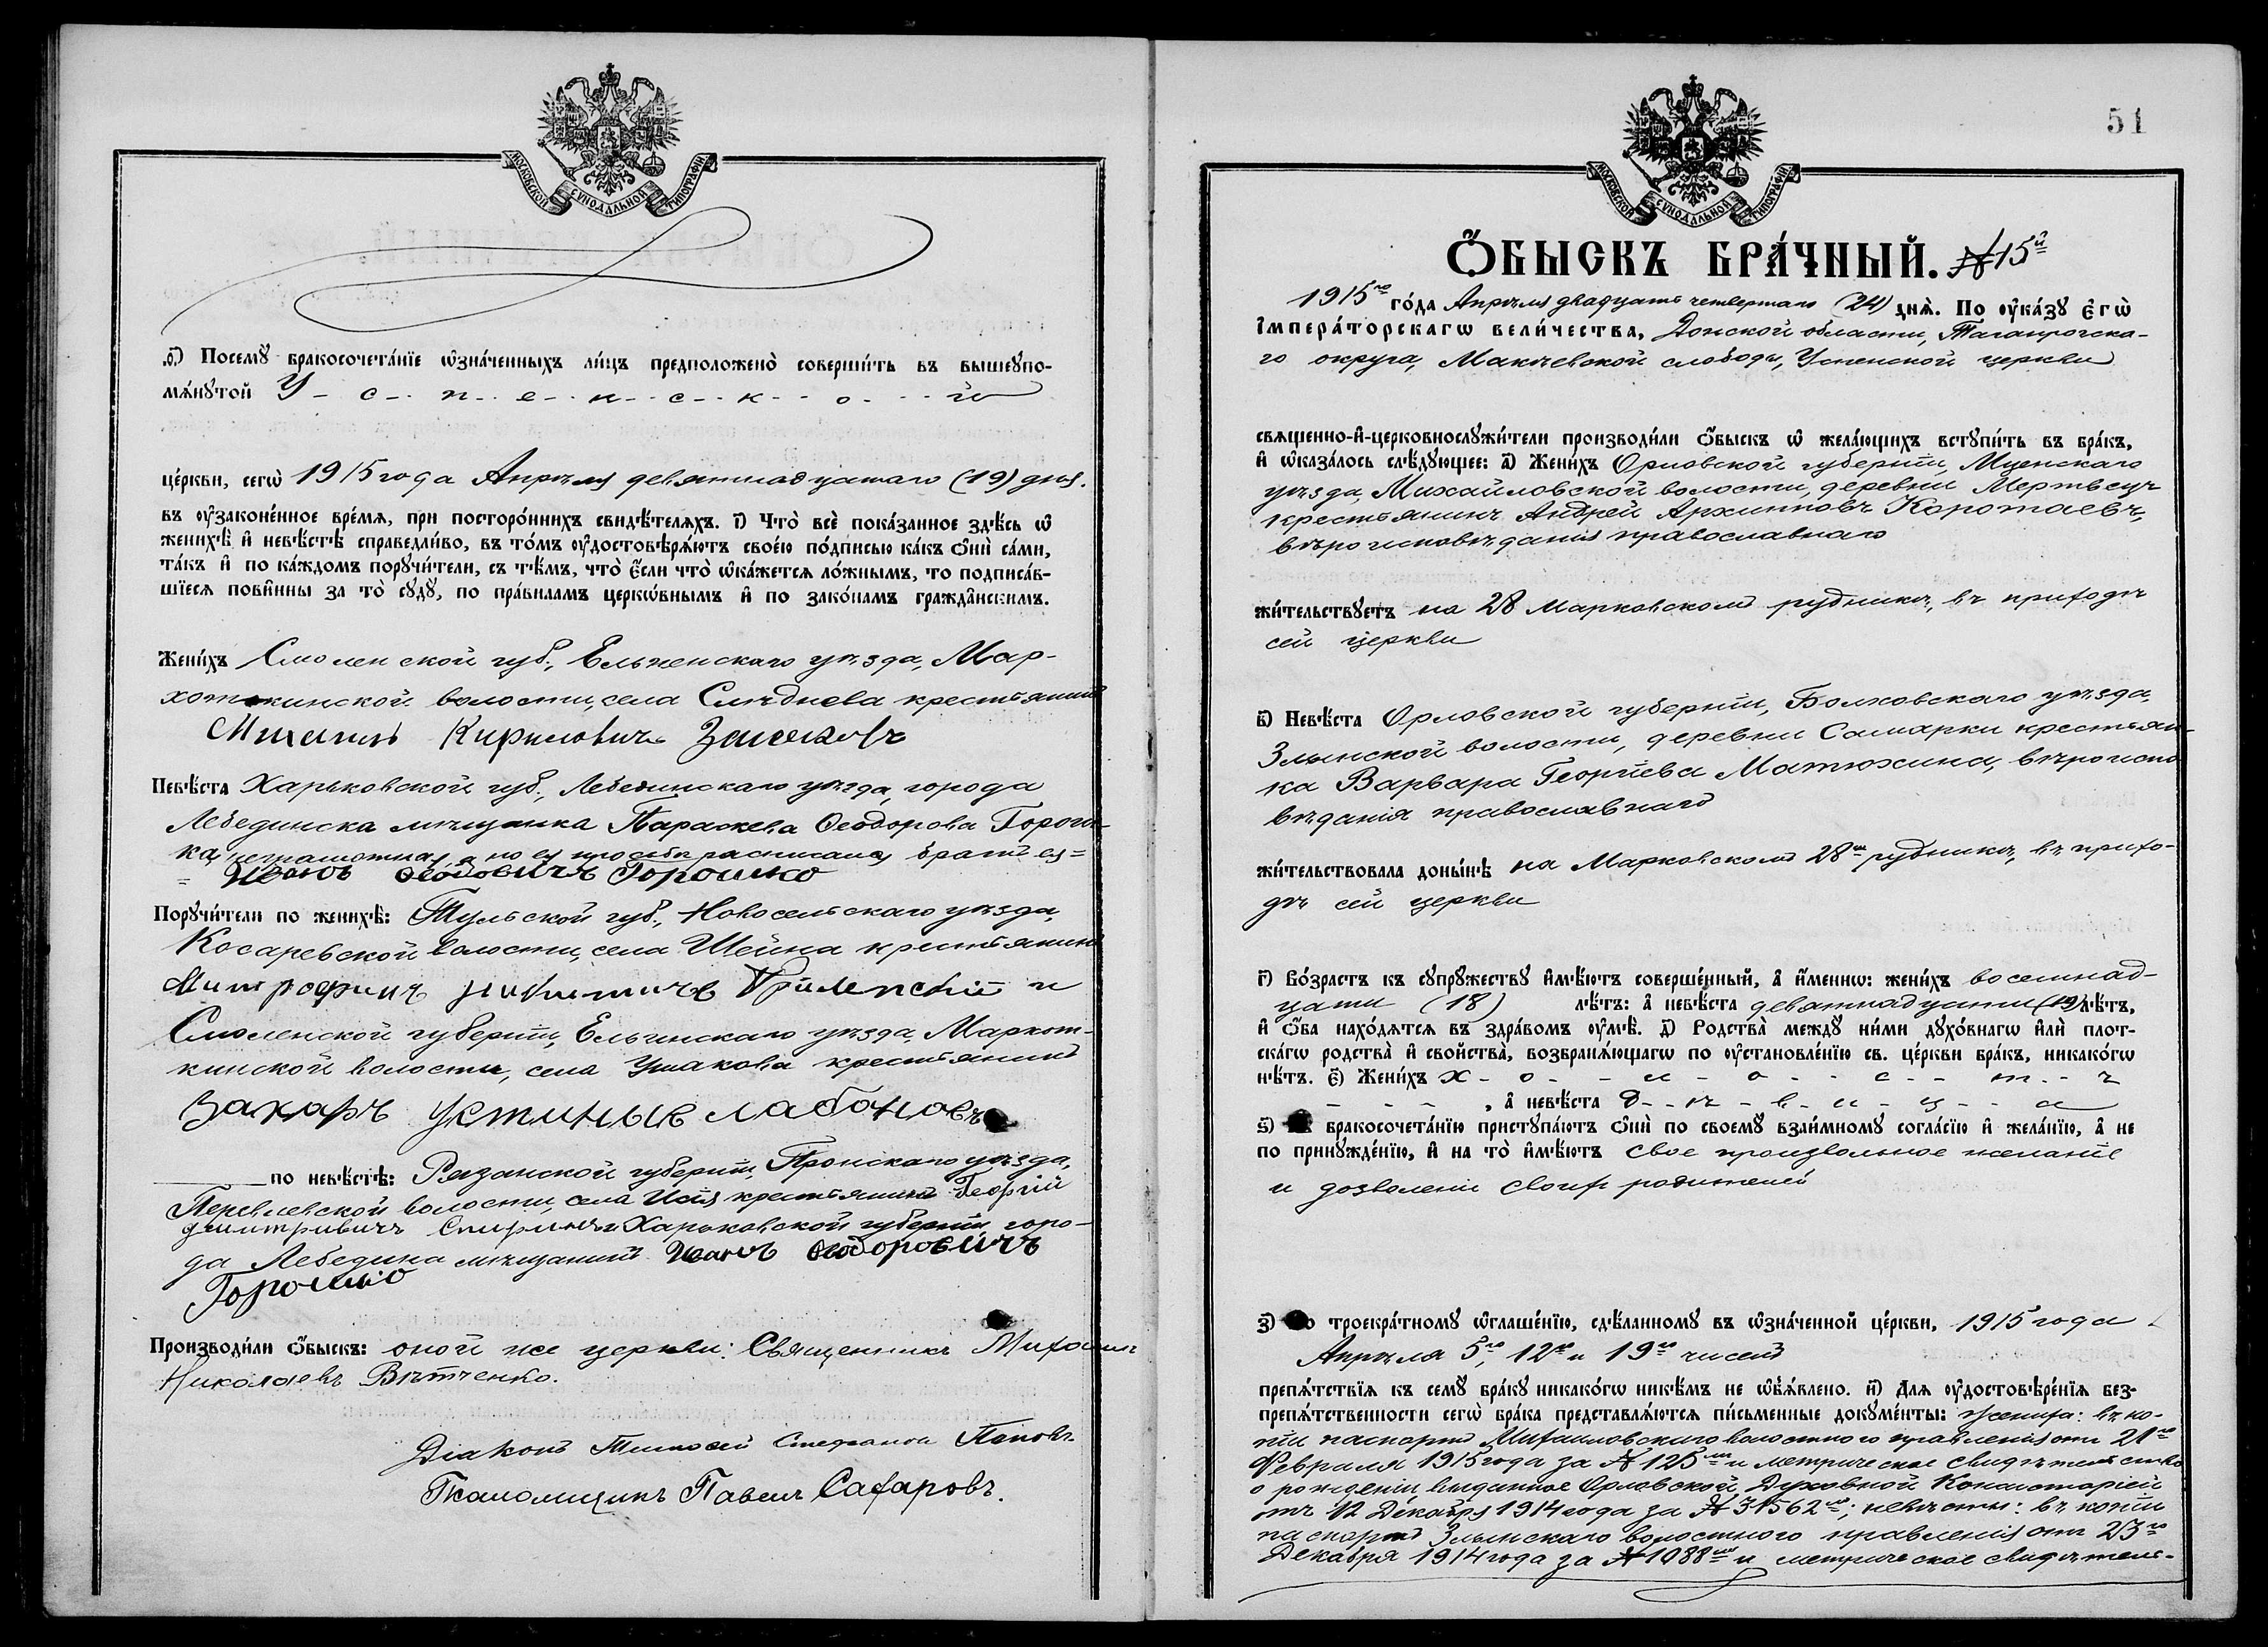 МОСКОВСКОЙ СѴНОДАЛЬНОЙ ТИПОГРАФІИ
.ѳ҃) Посемꙋ̀ бракосочета́нїе ѡ҆зна́ченныхъ ли́цъ предположено̀ соверши́ть въ вышеꙋпо-
мѧ́нꙋтой У - с - п - е - н - с - к - о - й
це́ркви, сегѡ̀ 1915 года Апрѣля девятнадцатаго (19) дня.
въ ᲂу҆законе́нное вре́мѧ, при посторо́ннихъ свидѣ́телѧхъ. і҃) Что̀ всѐ пока́занное здѣ́сь ѡ҆
женихѣ̀ и҆ невѣ́стѣ справедли́во, въ то́мъ ᲂу҆достовѣрѧ́ютъ своею по́дписью ка́къ ѻ҆нѝ са́ми,
та́къ и҆ по ка́ждомъ порꙋчи́тели, съ тѣ́мъ, что̀ є҆́сли что̀ ѡ҆ка́жетсѧ ло́жнымъ, то подписа́в-
шїесѧ пови́нны за то̀ сꙋдꙋ̀, по пра́виламъ церкѡ́внымъ и҆ по зако́намъ гражда̂нскимъ.
Жени́хъ Смоленской губ., Ельненскаго уѣзда, Мар-
хоткинской волости, села Слѣднева крестьянинъ
Михаилъ Кириловичъ
Невѣ́ста Харьковской губ., Лебединскаго уѣзда, города
Лебединска мѣщанка Параскева Ѳеодорова Горош-
ка, неграмотная, а по ея просьбѣ расписался братъ ея=
= Иванъ Горошко
Порꙋчи́тели по женихѣ̀: Тульской губ., Новосельскаго уѣзда,
Косаревской волости, села Шеина крестьянинъ
Митрофанъ Никитичъ и
Смоленской губерніи, Ельнинскаго уѣзда, Мархот-
кинской волости, села Ушакова крестьянинъ
Захаръ Устиныв лабоновъ
по невѣ́стѣ: Рязанской губерніи, Пронскаго уѣзда,
волости, села крестьянинъ Георгій
Спиринъ и Харьковской губерніи горо-
да Лебедина мѣщанинъ Иванъ Ѳеодоровичъ
Горошко
Производи́ли ѻ҆́быскъ: оной же церкви: Священникъ Михаилъ
Николаевъ Вѣтченко.
Діаконъ Тимоѳей Стефановъ Поповъ.
Псаломщикъ Павелъ Сафаровъ.
51
МОСКОВСКОЙ СѴНОДАЛЬНОЙ ТИПОГРАФІИ
Ѻ҆́БЫСКЪ БРА́ЧНЫЙ. № 15й
1915го го́да Апрѣля двадцать четвертаго (24) днѧ̀. По ᲂу҆ка́зꙋ Є҆гѡ̀
І҆мпера́торскагѡ вели́чества, Донской области, Таганрогска-
го округа, Макѣевской слободы, Успенской церкви
свѧщенно-и҆-церковнослꙋжи́тели производи́ли ѻ҆́быскъ ѡ҆ жела́ющихъ встꙋпи́ть въ бра́къ,
и҆ ѡ҆каза́лось слѣ́дꙋющее: а҃) Жени́хъ Орловской губерніи, Мценскаго
уѣзда, Михайловской волости, деревни Мертвецъ
крестьянинъ Андрей Архиповъ Коротаевъ,
вѣроисповѣданія православнаго
жи́тельствꙋетъ на 28 Марковскомъ рудникѣ, въ приходѣ
сей церкви
в҃) Невѣ́ста Орловской губерніи, Болховскаго уѣзда,
Злынской волости, деревни Самарки крестьян-
ка Варвара Георгіева Матюхина, вѣроиспо
вѣданія православнаго
жи́тельствовала доны́нѣ на Марковскомъ 28м рудникѣ, въ прихо-
дѣ сей церкви
г҃) Во́зрастъ къ сꙋпрꙋ́жествꙋ и҆мѣ́ютъ соверше́нный, а҆ и҆́меннѡ: жени́хъ восемнад-
цати (18) лѣ́тъ: а҆ невѣ́ста девятнадцати (19) лѣ́тъ,
и҆ ѻ҆́ба нахо́дѧтсѧ въ здра́вомъ ᲂу҆мѣ̀. д҃) Родства̀ междꙋ̀ ни́ми дꙋхо́внагѡ и҆лѝ плот-
ска́гѡ родства̀ и҆ свойства̀, возбранѧ́ющагѡ по ᲂу҆становле́нїю св. це́ркви бра́къ, никако́гѡ
нѣ́тъ. є҃) Жени́хъ х - о - л - о - с - т - ъ
- - - , а҆ невѣ́ста д - ѣ - в - и - ц - а
ѕ҃) бракосочета́нїю пристꙋпа́ютъ ѻ҆нѝ по своемꙋ̀ взаи́мномꙋ согла́сїю и҆ жела́нїю, а҆ не
по принꙋжде́нїю, и҆ на то̀ и҆мѣ́ютъ свое произвольное желаніе
и дозволеніе своихъ родителей
з҃) троекра́тномꙋ ѡ҆глаше́нїю, сдѣ́ланномꙋ въ ѡ҆зна́ченной це́ркви, 1915 года
Апрѣля 5го, 12го и 19го чиселъ
препѧ́тствїѧ къ семꙋ̀ бра́кꙋ никако́гѡ никѣ́мъ не ѡ҆б̾ѧ́влено. и҃) Длѧ ᲂу҆достовѣре́нїѧ без-
препѧ́тственности сегѡ̀ бра́ка представлѧ́ютсѧ пи́сьменные докꙋме́нты: жениха: въ ко-
піи паспортъ Михаиловскаго волостного правленія отъ 21го
Февраля 1915 года за № 125мъ и метрическое свидѣтельство
о рожденіи, выданное Орловской Духовной Консисторіей
отъ 12 Декабря 1914 года за № 31562мъ; невѣсты: въ копіи
паспортъ Злынскаго волостного правленія отъ 23го
Декабря 1914 года за № 1088мъ и метрическое свидѣтель-